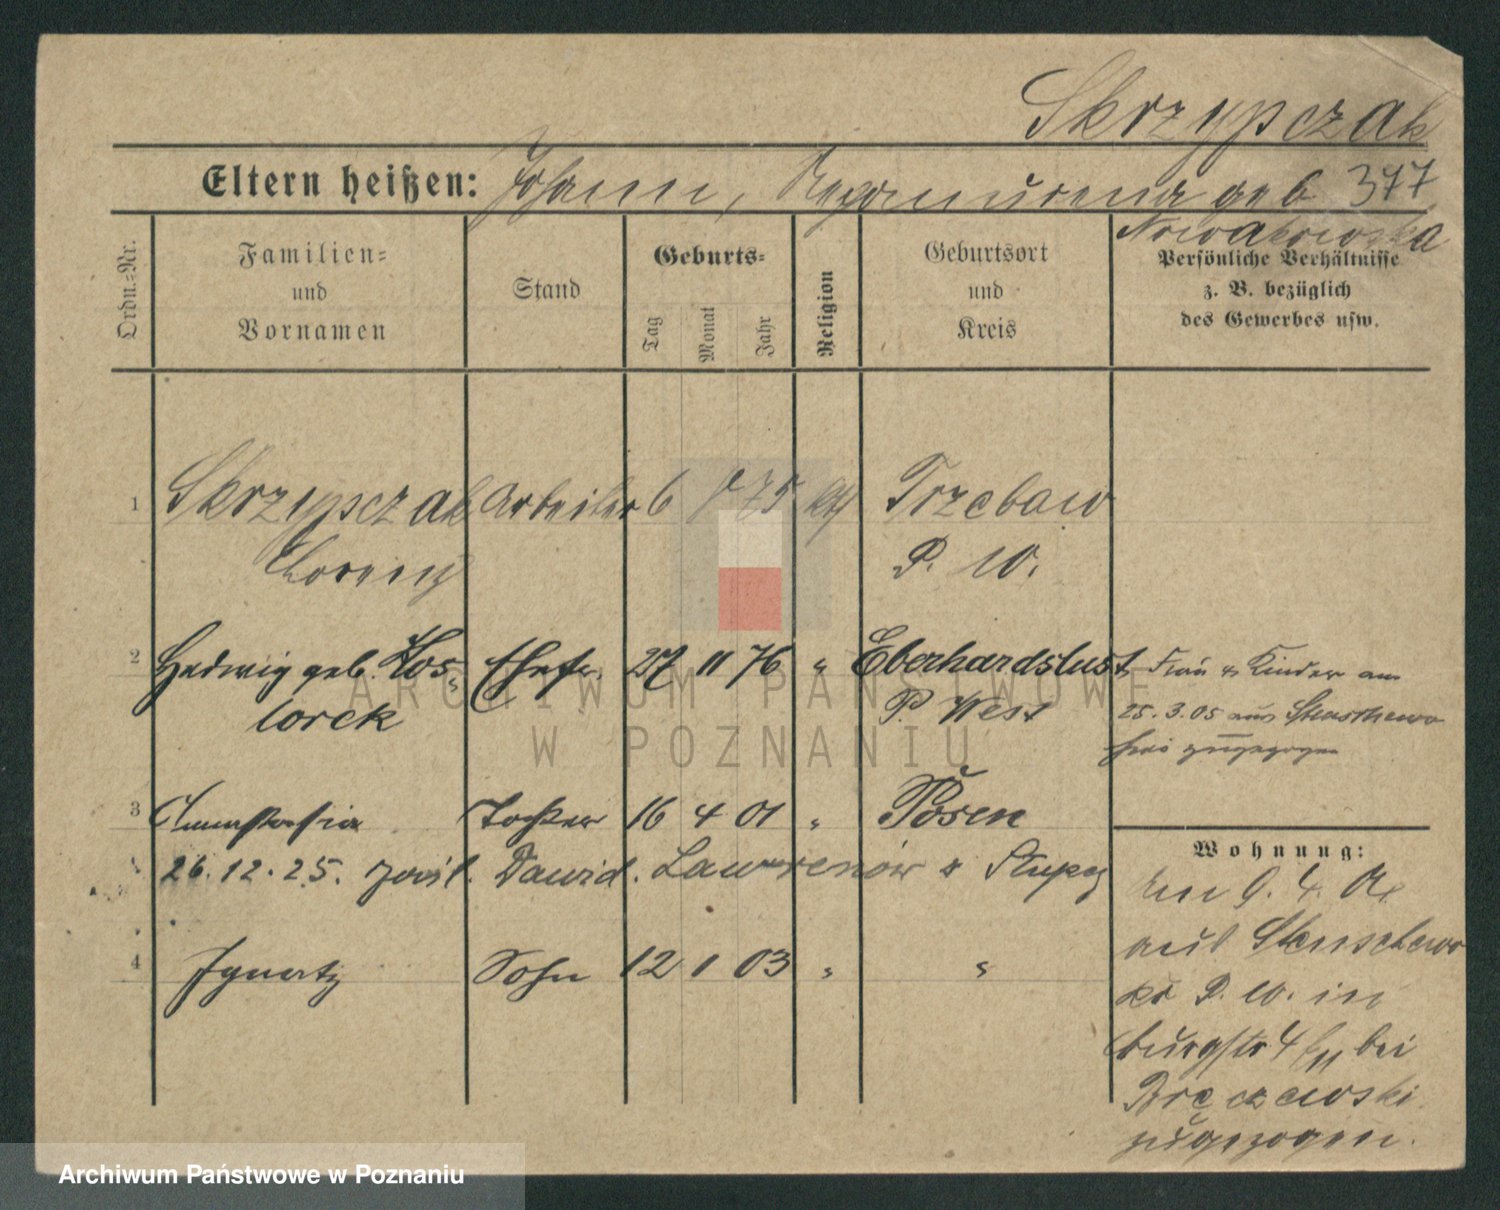 Skrzypczak
Eltern heißen: Johann, geb. 377
Nowakowska
Ordn.-Nr.
Familien-
und
Vornamen
Stand
Geburts-
Tag
Monat
Jahr
Religion
Geburtsort
und
Kreis
Persönliche Verhältnisse
z. B. bezüglich
des Gewerbes usw.
1 Skrzypczak Arbeiter 6 75 kth Trzebaw
Lorenz P. W.
2 Hedwig geb. Kos- Ehefr. 27 11 76 " Eberhardslust Frau u Kinder am
lorek P. West 25.3.05 aus
hier zugezogen
3 Annastasia Tochter 16 4 01 " Posen
26.12.25. Dawid. Lawrenów
4 Ignatz Sohn 12 1 03 " "
Wohnung:
Am 9. 4. 04
aus
P. W. in
Burgstr 4 bei
zugezogen.
ARCHIWUM PAŃSTWOWE
W POZNANIU
Archiwum Państwowe w Poznaniu